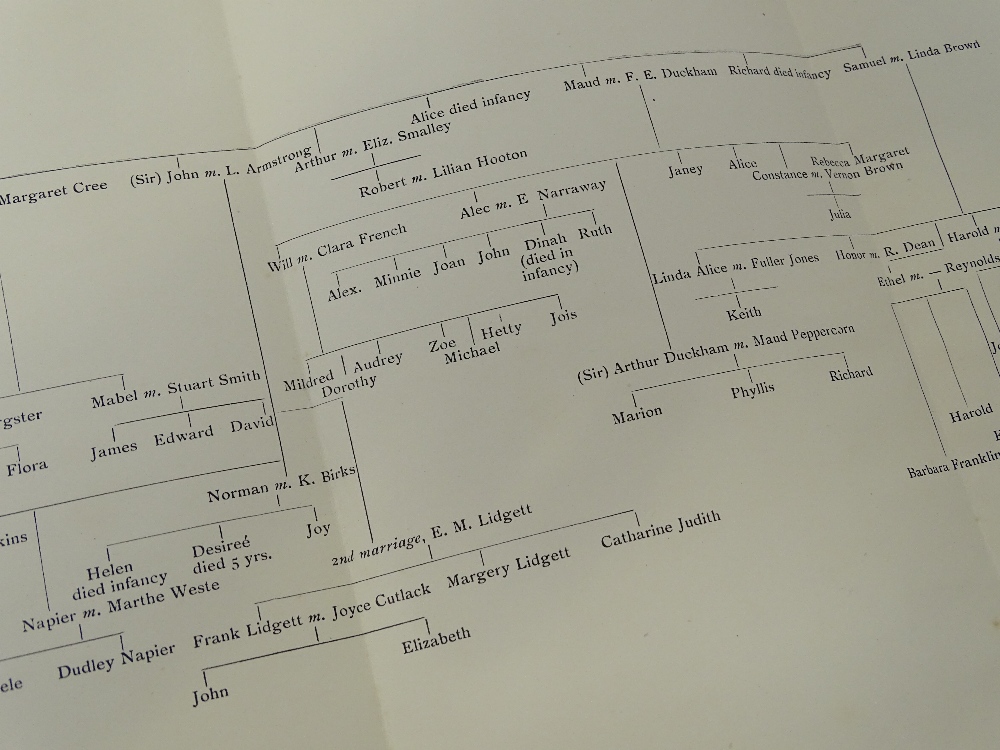 Margaret Cree
(Sir) John m. L. Armstrong
Arthur m. Eliz. Smalley
Alice died infancy
Maud m. F. E. Duckham
Richard died infancy
Samuel m. Linda Brown
Robert m. Lilian Hooton
Will m. Clara French
Alec m. E Narraway
Janey
Alice
Constance m. Vernon Brown
Rebecca Margaret
Julia
Alex.
Minnie
Joan
John
Dinah
(died in
infancy)
Ruth
Linda Alice m. Fuller Jones
Honor m. R. Dean
Harold m
Ethel m. — Reynolds
Keith
Mildred
Dorothy
Audrey
Zoe
Michael
Hetty
Jois
(Sir) Arthur Duckham m. Maud Peppercorn
Marion
Phyllis
Richard
Harold
Barbara Franklin
gster
Mabel m. Stuart Smith
Flora
James
Edward
David
Norman m. K. Birks
2nd marriage, E. M. Lidgett
kins
Helen
died infancy
Desireé
died 5 yrs.
Joy
Napier m. Marthe Weste
Frank Lidgett m. Joyce Cutlack
Margery Lidgett
Catharine Judith
ele
Dudley Napier
John
Elizabeth